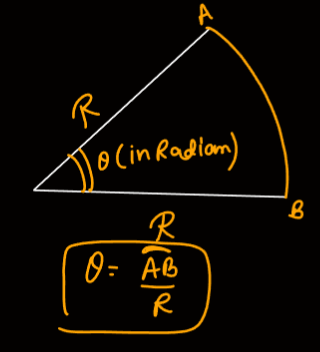 A
R
θ (in Radian)
B
R
θ = A͡B / R